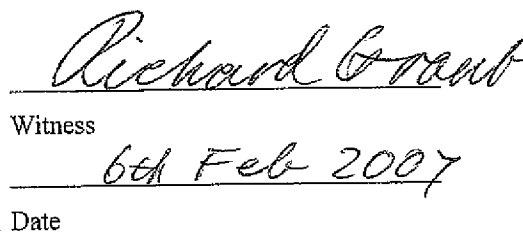 Richard
Witness
6th Feb 2007
Date